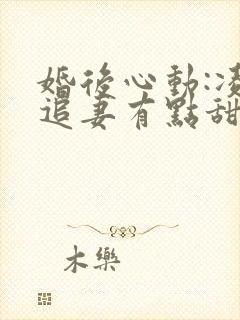 婚後心動:凌
追妻有點甜
木樂